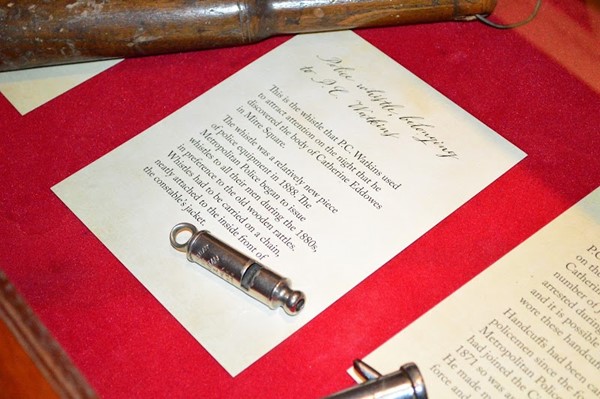 Police whistle, belonging
to P.C. Watkins
This is the whistle that P.C. Watkins used
to attract attention on the night that he
discovered the body of Catherine Eddowes
in Mitre Square.
The whistle was a relatively new piece
of police equipment in 1888. The
Metropolitan Police began to issue
whistles to all their men during the 1880s,
in preference to the old wooden rattles.
Whistles had to be carried on a chain,
neatly attached to the inside front of
the constable's jacket.
P.C.
on the
Catherin
number of
arrested during
and it is possible
wore these handcu
Handcuffs had been ca
policemen since the fo
Metropolitan Police
1871 so was an
had joined the C
He made m
force and